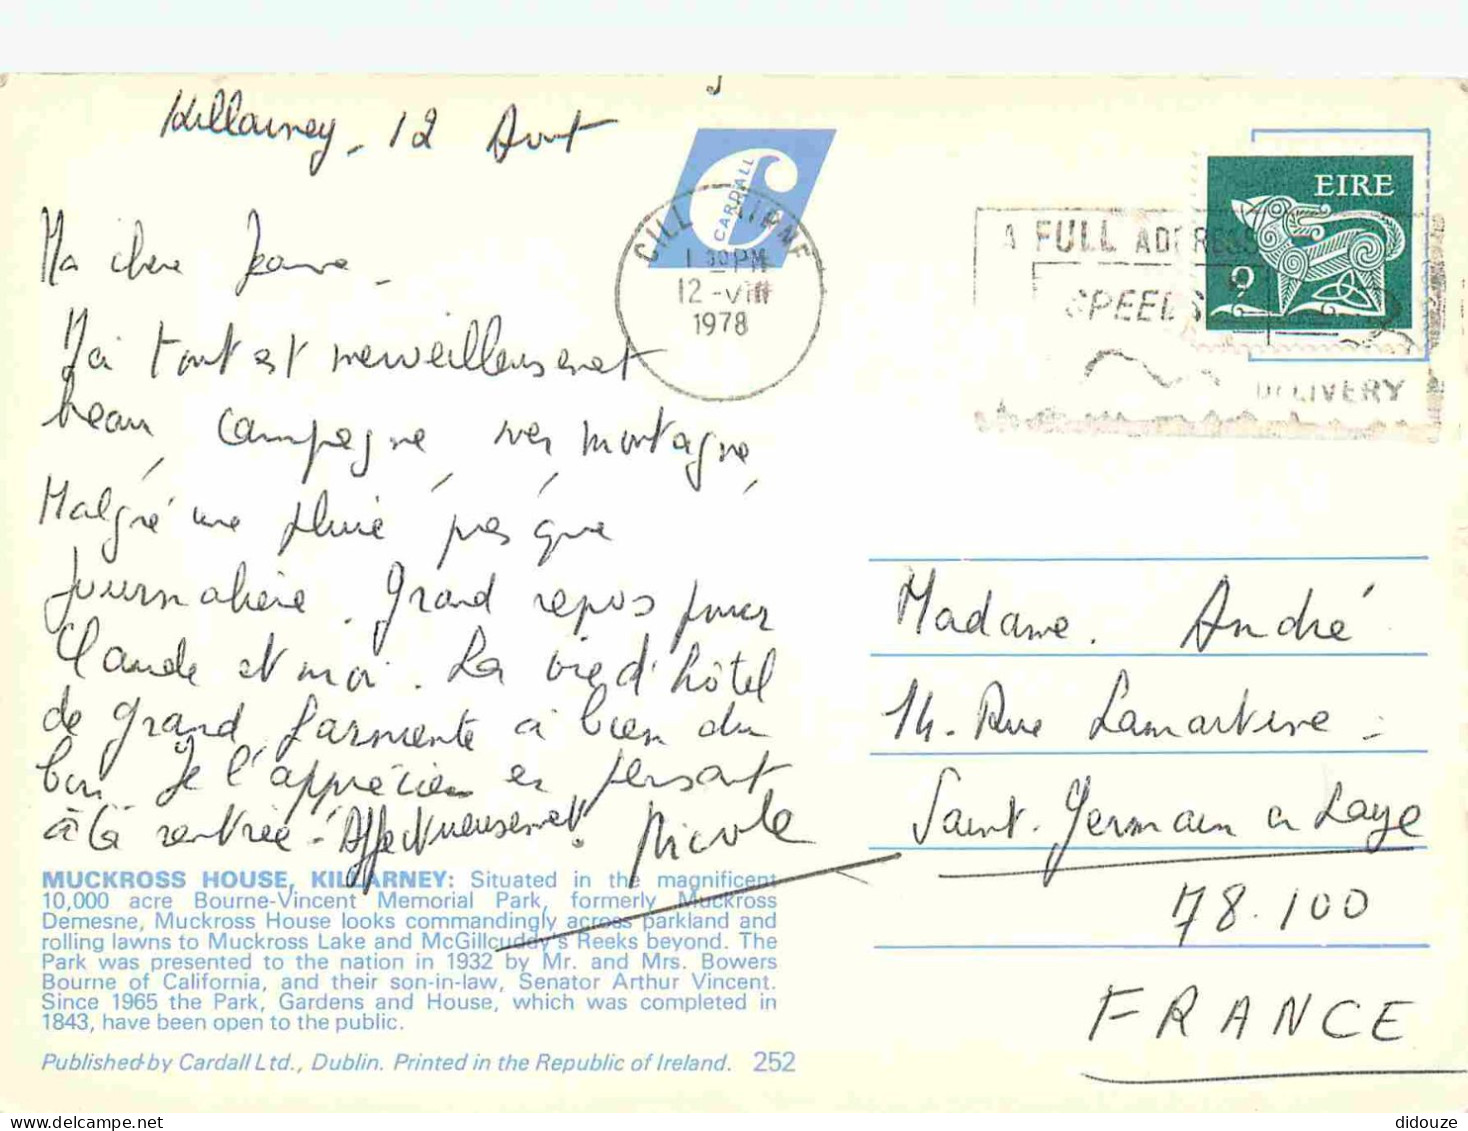 Killarney, 12 Aout
Ma chère Jeanne.
Ici tout est merveilleusement
beau, campagne, mer, montagne,
Malgré une pluie presque
journalière. Grand repos pour
Claude et moi. La vie d'hôtel
de grand farniente a bien du
bon. Je l'apprécie en pensant
à la rentrée. Affectueusement.
Nicole
MUCKROSS HOUSE, KILLARNEY: Situated in the magnificent
10,000 acre Bourne-Vincent Memorial Park, formerly Muckross
Demesne, Muckross House looks commandingly across parkland and
rolling lawns to Muckross Lake and McGillcuddy's Reeks beyond. The
Park was presented to the nation in 1932 by Mr. and Mrs. Bowers
Bourne of California, and their son-in-law, Senator Arthur Vincent.
Since 1965 the Park, Gardens and House, which was completed in
1843, have been open to the public.
Published by Cardall Ltd., Dublin. Printed in the Republic of Ireland. 252
CARDALL
CILL AIRNE
1 30 PM
12-VIII
1978
A FULL ADDRESS
SPEEDS
DELIVERY
EIRE
9
Madame. André
14. Rue Lamartine
Saint. Germain en Laye
78.100
FRANCE
didouze